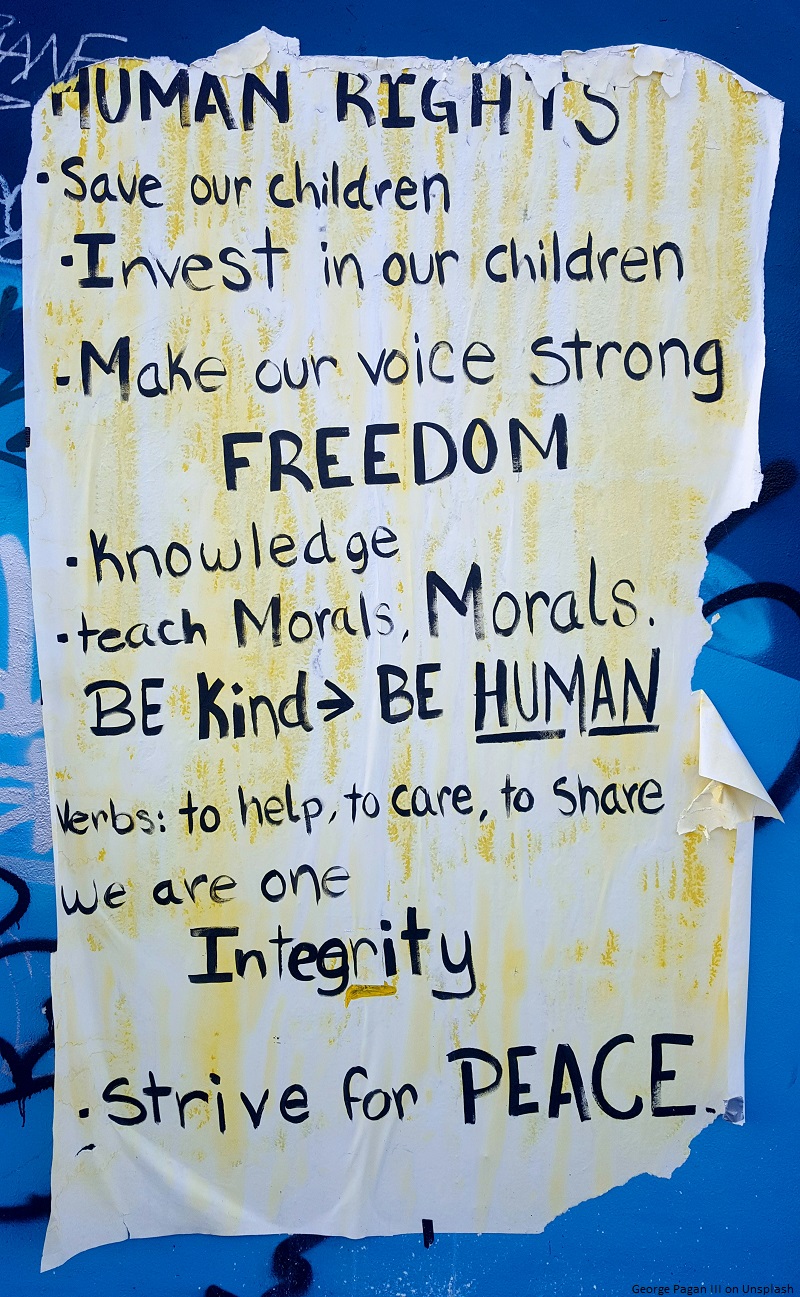 HUMAN RIGHTS
· Save our children
· Invest in our children
· Make our voice strong
FREEDOM
· Knowledge
· teach Morals, Morals.
BE Kind → BE HUMAN
Verbs: to help, to care, to share
we are one
Integrity
· Strive for PEACE.
George Pagan III on Unsplash